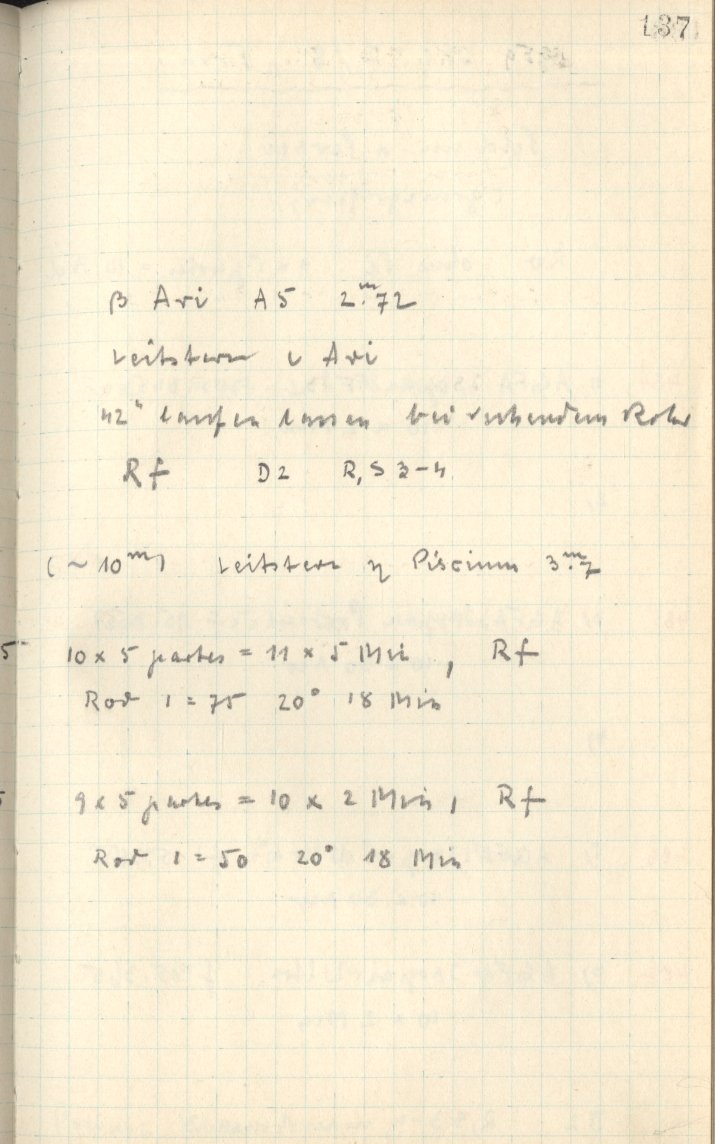 137
β Ari A5 2ᵐ.72
Leitstern ι Ari
42ˢ laufen lassen bei ruhendem Rohr
Rf D2 R, S 3-4
(~10ᵐ) Leitstern η Piscium 3ᵐ.7
5 10 x 5 partes = 11 x 5 Min, Rf
Rod 1 = 75 20° 18 Min
5 9 x 5 partes = 10 x 2 Min, Rf
Rod 1 = 50 20° 18 Min